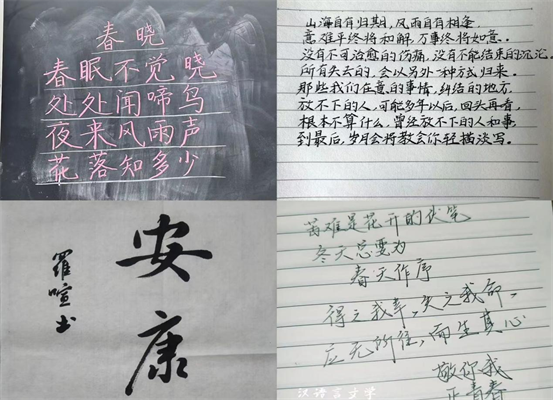 春晓
春眠不觉晓
处处闻啼鸟
夜来风雨声
花落知多少
山海自有归期,风雨自有相逢。
意难平终将和解,万事终将如意。
没有不可治愈的伤痛,没有不能结束的沉沦。
所有失去的,会以另外一种方式归来。
那些我们在意的事情,纠结的地方
放不下的人,可能多年以后,回头再看,
根本不算什么,曾经放不下的人和事,
到最后,岁月会将教会你轻描淡写。
安康
羅喧书
苦难是花开的伏笔
冬天总要为
春天作序
得之我幸,失之我命,
应无所住,而生其心
敬你我
正青春
汉语言文学